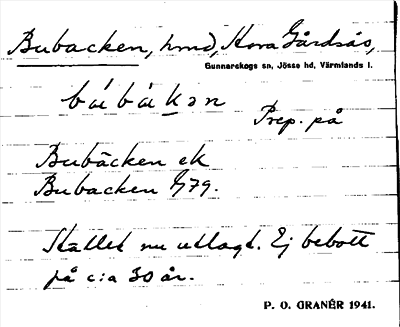 Bubacken, hmd, Stora Gårdsås,
Gunnarskogs sn, Jösse hd, Värmlands l.
búbákən
Prep. på
Bubäcken ek
Bubacken G79.
Stället nu utlagt. Ej bebott
på c:a 30 år.
P. O. GRANÉR 1941.